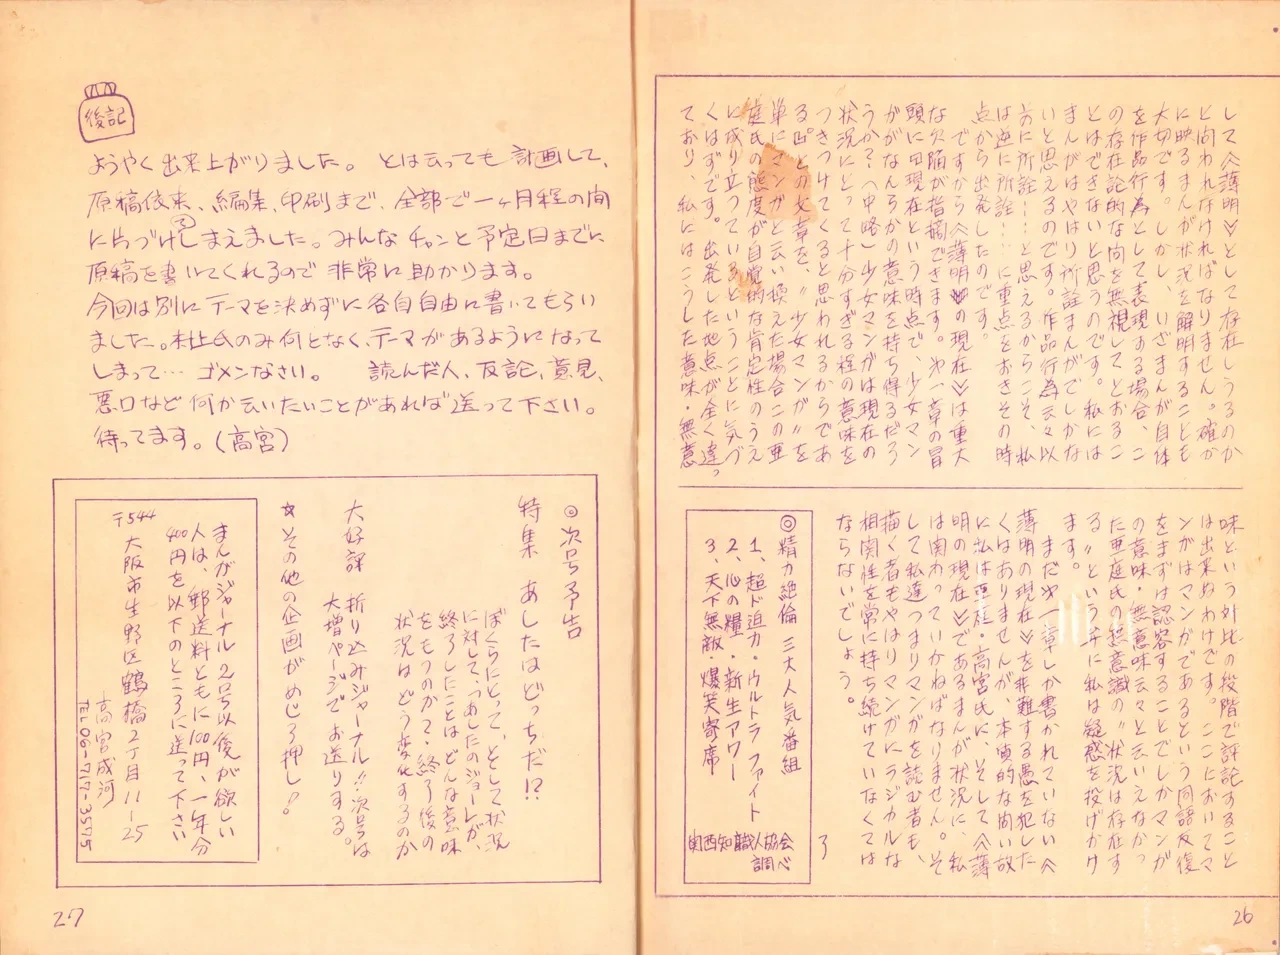 して〈薄明〉として存在しうるのか
と問われなければなりません。確か
に映るまんが状況を解明することも
大切です。しかし、いざまんが自体
を作品行為として表現する場合、こ
の存在論的な問を無視してとおるこ
とはできないと思うのです。私には
まんがはやはり所詮まんがでしかな
いと思えるのです。作品行為云々以
前に所詮……と思えるからこそ、私
は逆に所詮……に重点をおきその時
点から出発したのです。
ですから〈薄明の現在〉は重大
な欠陥が指摘できます。第一章の冒
頭に曰現在という時点で、少女マン
ががなんらかの意味を持ち得るだろ
うか?(中略)少女マンガは現在の
状況にとって十分すぎる程の意味を
つきつけてくると思われるからであ
る。との文章を、〝少女マンガ〟を
単にマンガと云い換えた場合この亜
庭氏の態度が自覚的な肯定性のうえ
に成り立っているということに気づ
くはずです。出発した地点が全く違っ
ており、私にはこうした意味・無意
味という対比の段階で評記すること
は出来ぬわけです。ここにおいてマ
ンガはマンガであるという同語反復
をまずは認容することでしかマンガ
の意味・無意味云々と云いえなかっ
た亜庭氏の超意識の〝状況は存在す
る〟という弁に私は疑惑を投げかけ
ます。
まだ第一章しか書かれていない〈
薄明の現在〉を非難する愚を犯した
くはありませんが、本質的な問い故
に私は亜庭・高宮氏に、そして〈薄
明の現在〉であるまんが状況に、私
は関わっていかねばなりません。そ
して私達つまりマンガを読む者も、
描く者もやはりマンガにラジカルな
相関性を常に持ち続けていなくては
ならないでしょう。
了
◎精力絶倫 三大人気番組
1、超ド迫力・ウルトラファイト
2、心の糧・新生アワー
3、天下無敵・爆笑寄席
関西知識人協会
調べ
26
後記
ようやく出来上がりました。とは云っても計画して、
原稿依来、編集、印刷まで、全部で一ヶ月程の間
に片づけてしまえました。みんなチャンと予定日までに
原稿を書いてくれるので非常に助かります。
今回は別にテーマを決めずに各自自由に書いてもらい
ました。村上氏のみ何となく、テーマがあるようになって
しまって… ゴメンなさい。 読んだ人、反論、意見、
悪口など何か云いたいことがあれば送って下さい。
待ってます。(高宮)
◎次号予告
特集 あしたはどっちだ!?
ぼくらにとって、として状況
に対して、〝あしたのジョー〟が、
終了したことはどんな意味
をもつのか?・終了後の
状況はどう変化するのか
大好評 折り込みジャーナル!!次号は
大増ページでお送りする。
☆その他の企画がめじろ押し!
まんがジャーナル2号以後が欲しい
人は、郵送料ともに100円、一年分
400円を以下のところに送って下さい
〒544
大阪市生野区鶴橋2丁目11-25
高宮成河
TEL06-717-3575
27